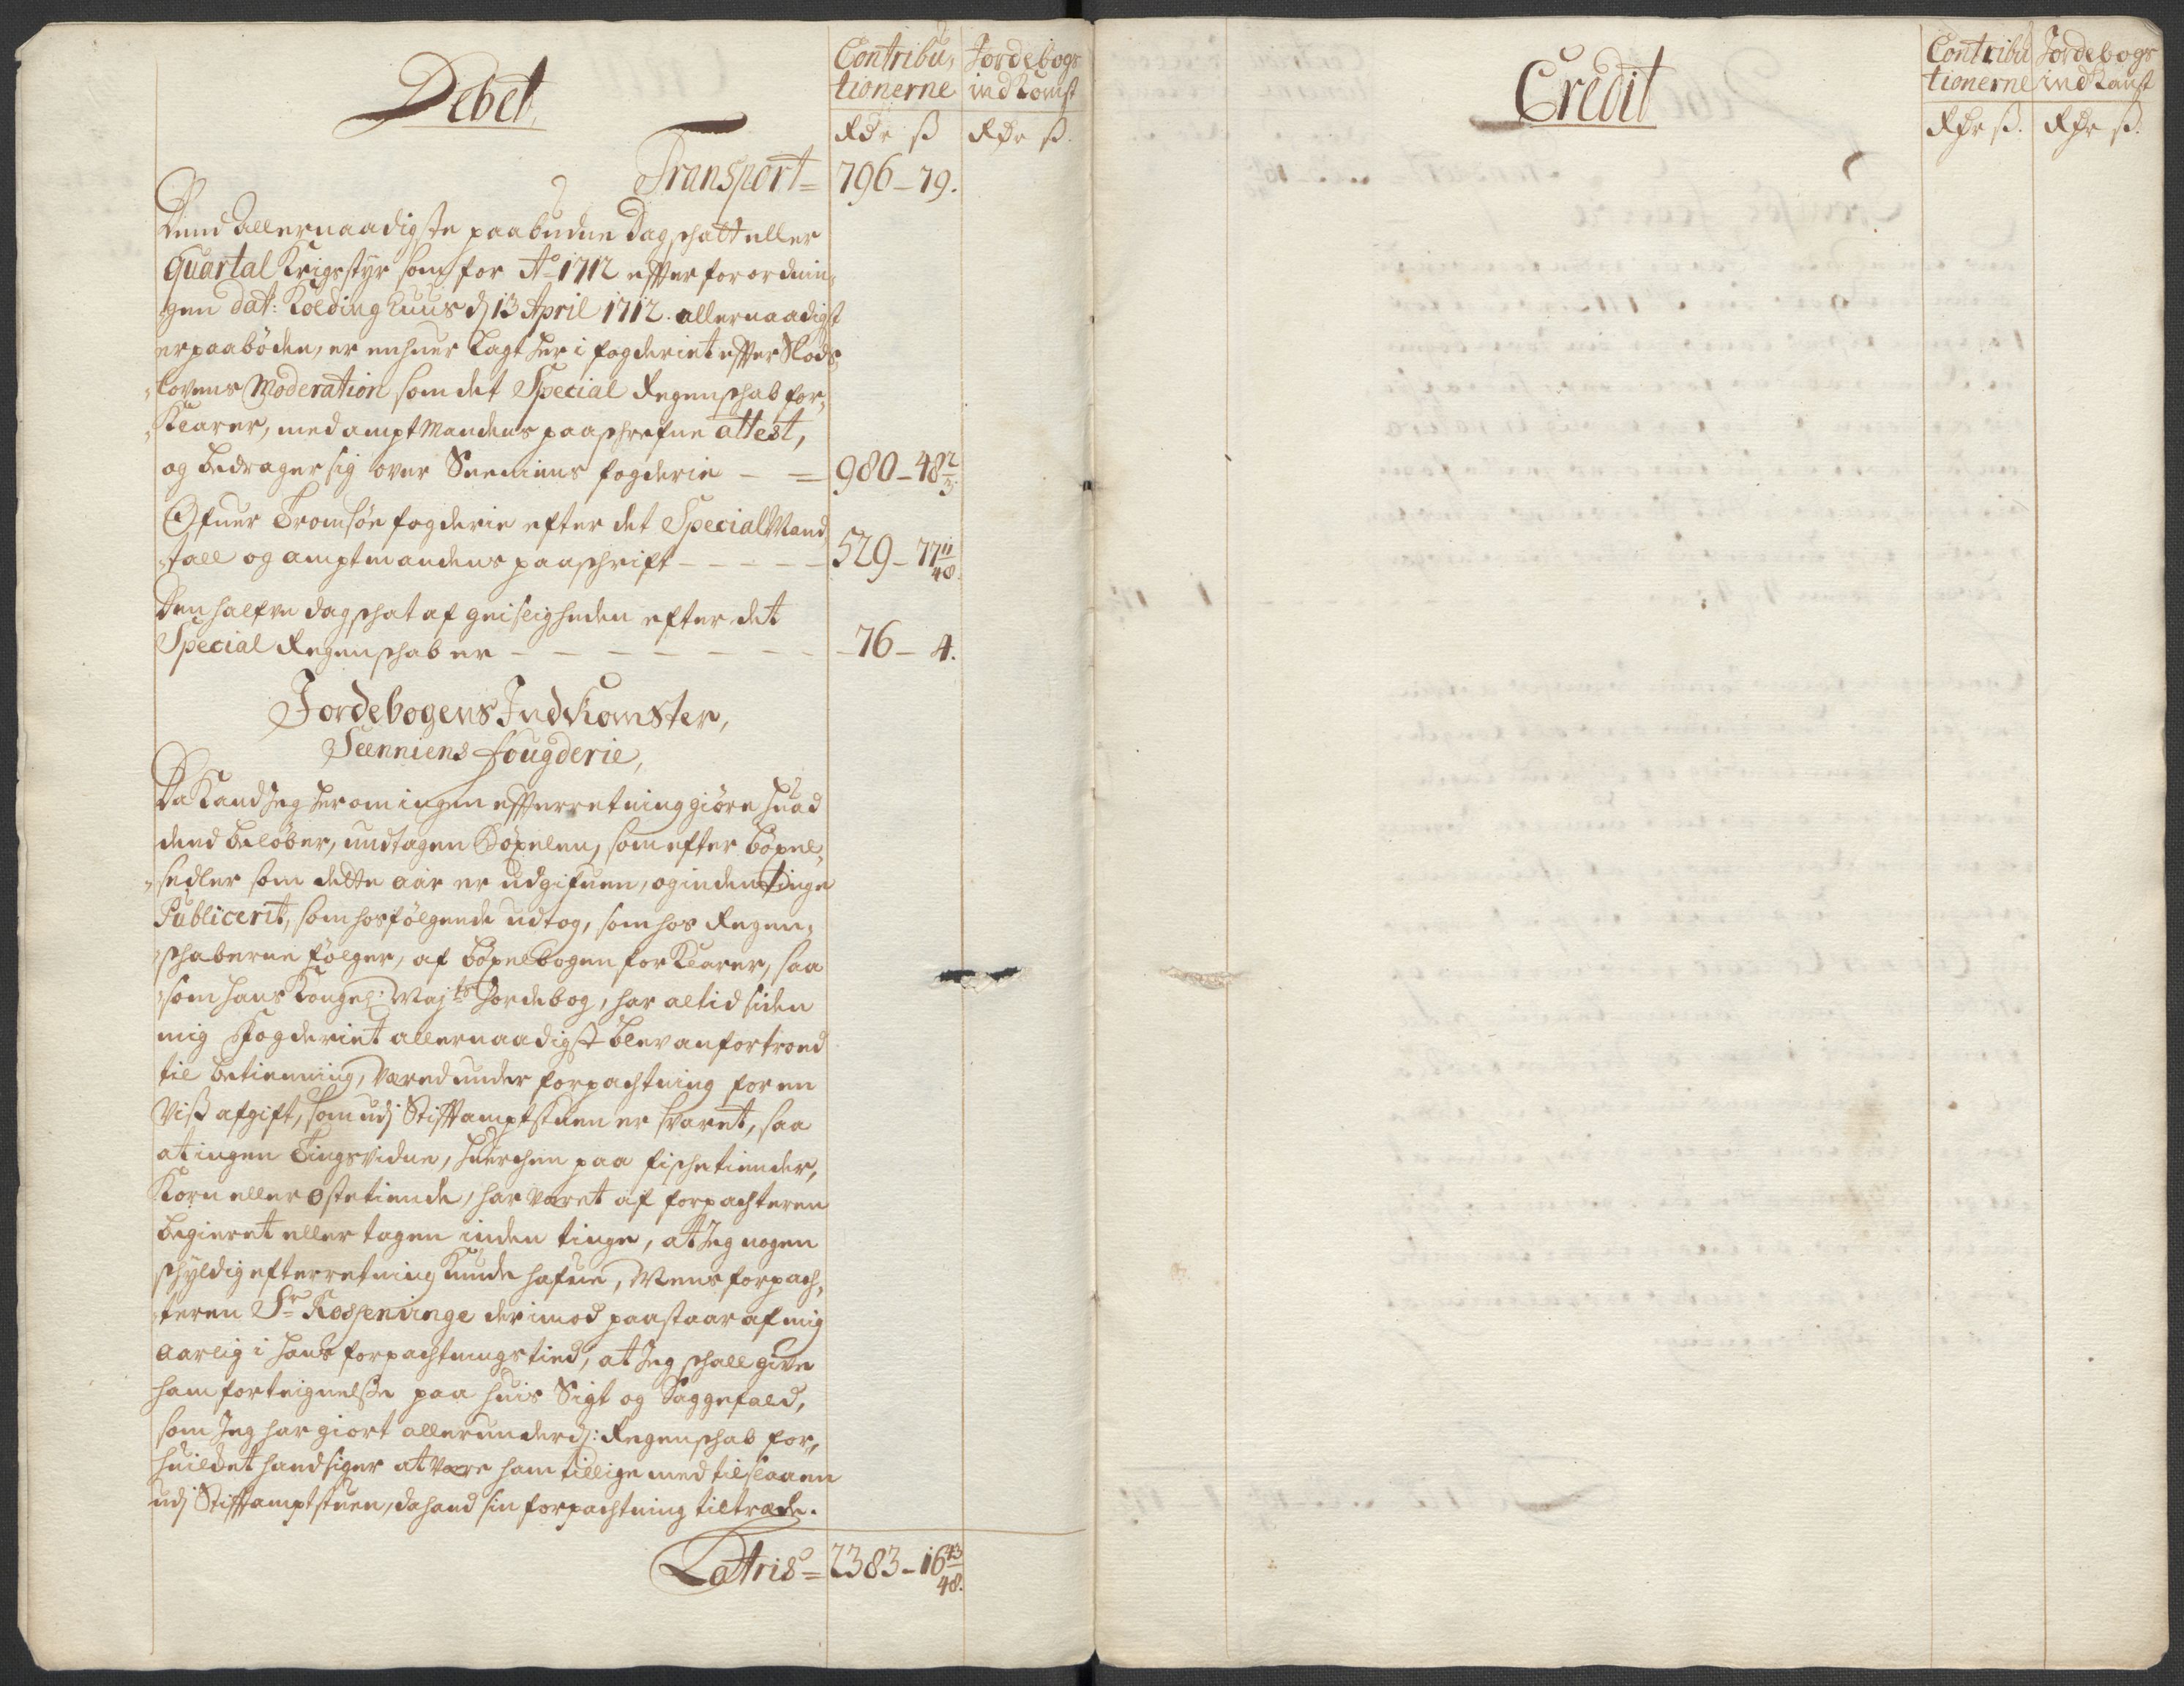 Debet
Contribu,
tionerne
Rdr ß
Jordebogs
indkomst
Rdr ß.
Transport= 796-79.
Dend Allernaadigste paabudne Dagschatt eller
Quartal Krigsstyr som for Ao 1712 effter forordnin,
gen dat: Kolding huus dj 13 April 1712. allernaadigst
er paaböden, er enhver lagt her i fogderiet effter Slods,
lovens Moderation som det Special Regenschab for,
klarer, med amptmandens paaschrefne attest,
og bedrager sig over Senniens fogderie - = 980-48 2/3
Ofuer Tromsöe fogderie efter det Special Mand
tall og amptmandens paaschrift - - - - - 529-77 11/48.
Den halfve dagschat af geistligheden efter det
Special Regenschab er - - - - - - - 76- 4.
Jordebogens Indkomster,
Seenniens fougderie,
Da kand Jeg her om ingen effterretning giöre huad
dend belöber, undtagen Böxelen, som efter böxel,
sedler som dette aar er udgifuen, og inden Tinge
Publicerit, som hosfölgende udtog, som hos Regen,
schaberne fölger, af böxelbogen forklarer, saa
som hans Kongel: Majts Jordebog, har altid siden
mig Fogderiet allernaadigst blev anfortroed
til betienning, været under forpachtning for en
viss afgift, som udj Stifftamptstuen er svaret, saa
at ingen Tingsvidne, huerchen paa fischetiender,
Korn eller ostetiende, har været af forpachteren
begieret eller tagen inden tinge, at Jeg nogen
schyldig efterretning kunde hafue, Mens forpach,
teren Sr Kospenvinge derimod paastaar af mig
aarlig i hans forpachtnings tied, at Jeg schall give
ham forteignelsse paa huis Sigt og Saggefald,
som Jeg har giort allerunderdj: Regenschab for,
huilcket hand siger at være ham tillige med tilslaaen
udj Stifftamptstuen, da hand sin forpachtning tiltræde.
Latris= 2383-16 43/48.
Credit
Contribu
tionerne
Rdr ß.
Jordebogs
indkomst
Rdr ß.